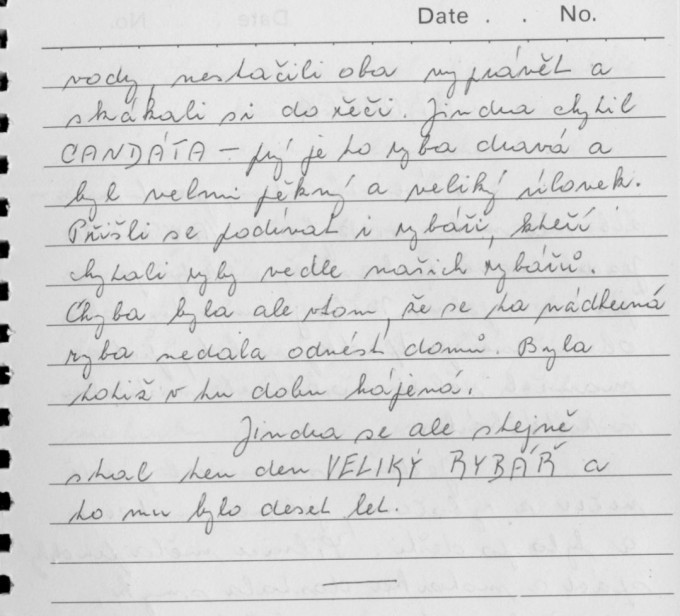 Date . . No.
vody, nestačili oba vyprávět a
skákali si do řeči. Jindra chytil
CANDÁTA – prý je to ryba dravá a
byl velmi pěkný a veliký úlovek.
Přišli se podívat i rybáři, kteří
chytali ryby vedle našich rybářů.
Chyba byla ale vtom, že se ta nádherná
ryba nedala odnést domů. Byla
totiž v tu dobu hájená.
Jindra se ale stejně
stal ten den VELIKÝ RYBÁŘ a
to mu bylo deset let.